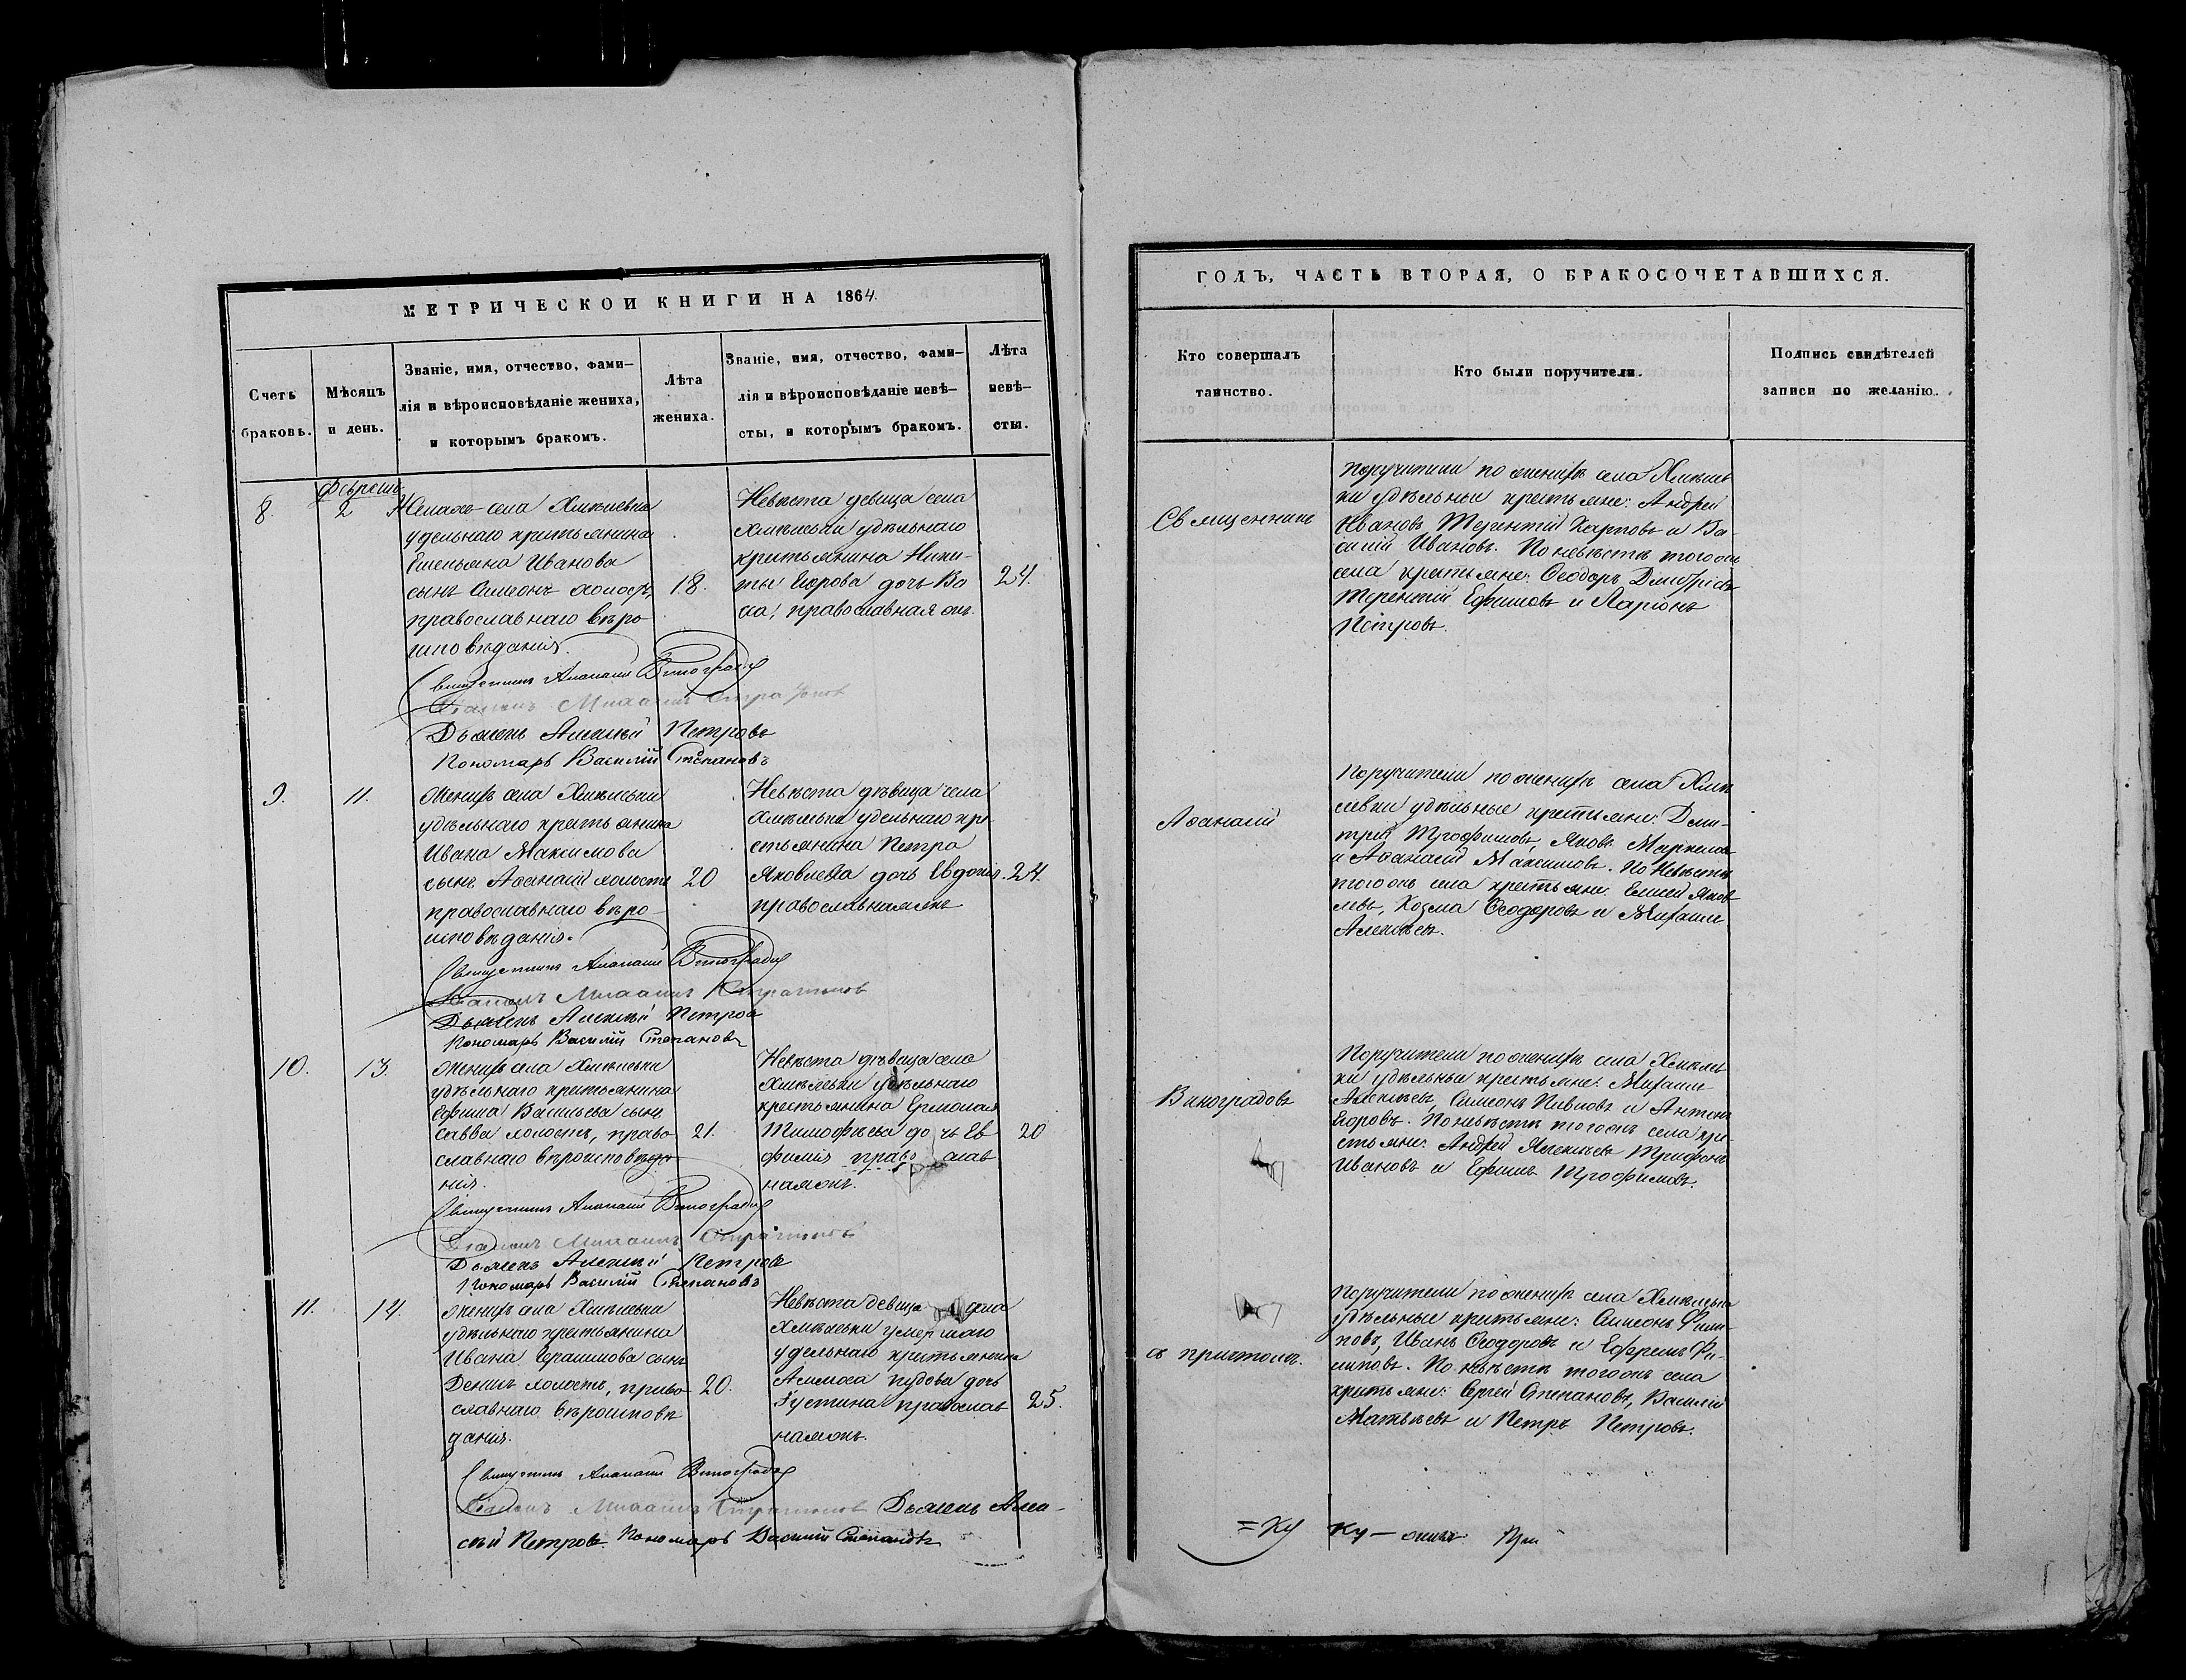 МЕТРИЧЕСКОЙ КНИГИ НА 1864.
Счетъ
браковъ.
Мѣсяцъ
и день.
Званіе, имя, отчество, фами-
лія и вѣроисповѣданіе жениха,
и которымъ бракомъ.
Лѣта
жениха.
Званіе, имя, отчество, фами-
лія и вѣроисповѣданіе невѣ-
сты, и которымъ бракомъ.
Лѣта
невѣ-
сты.
8.
2
села Хмѣлевки
удельнаго крестьянина
Емельяна Иванова
сынъ Симеонъ холостъ,
православнаго вѣро
исповѣданія.
18.
Невѣста девица села
Хмѣлевки удѣльнаго
крестьянина Ники-
ты Егорова дочь Ва
са, православная
24.
Священникъ Аѳанасій Виноградовъ
Діаконъ Михаилъ
Дьячекъ Алексѣй Петровъ
Пономарь Василій Степановъ
9.
11.
Женихъ села Хмѣлевки
удѣльнаго крестьянина
Ивана Максимова
сынъ Аѳанасій холостъ
православнаго вѣро-
исповѣданія.
20
Невѣста дѣвица села
Хмѣлевки удельнаго кре
стьянина Петра
Яковлева дочь Евдокія
православная
24.
Священникъ Аѳанасій Виноградовъ
Діаконъ Михаилъ
Дьячекъ Алексѣй Петровъ
Пономарь Василій Степановъ
10.
13.
Женихъ села Хмѣлевки
удѣльнаго крестьянина
Ефима Васильева сынъ
Савва холостъ, право
славнаго вѣроисповѣда
нія.
21.
Невѣста дѣвица села
Хмѣлевки удѣльнаго
крестьянина Ермолая
Тимофѣева дочь Ев
фимія православ
20
Священникъ Аѳанасій Виноградовъ
Діаконъ Михаилъ
Дьячекъ Алексѣй Петровъ
Пономарь Василій Степановъ
11.
14.
Женихъ села Хмѣлевки
удѣльнаго крестьянина
Ивана Герасимова сынъ
Денисъ холостъ, право
славнаго вѣроисповѣ
данія.
20.
Невѣста девица села
Хмѣлевки умершаго
удельнаго крестьянина
Пудова дочь
Густина православ
25.
Священникъ Аѳанасій Виноградовъ
Діаконъ Михаилъ Дьячекъ Алек-
сѣй Петровъ Пономарь Василій Степановъ
ГОДЪ, ЧАСТЬ ВТОРАЯ, О БРАКОСОЧЕТАВШИХСЯ.
Кто совершалъ
таинство.
Кто были поручители.
Подпись свидѣтелей
записи по желанію.
Священникъ
Аѳанасій
Виноградовъ
съ причтомъ.
Поручители по женихѣ села Хмѣлев
ки удѣльные крестьяне: Андрей
Ивановъ, Терентій Карповъ и Ва-
силій Ивановъ. По невѣстѣ тогожъ
села крестьяне: Ѳеодоръ Дмитріевъ
Терентій Ефимовъ и Ларіонъ
Петровъ.
Поручители по женихѣ села Хмѣ
левки удѣльные крестьяне: Дми-
трій Трофимовъ, Яковъ
и Аѳанасій Максимовъ. По невѣстѣ
тогожъ села крестьяне Елисей Яков
левъ, Козма Ѳеодоровъ и Михаилъ
Алексѣевъ.
Поручители по женихѣ села Хмѣлев
ки удѣльные крестьяне: Михаилъ
Алексѣевъ, Симеонъ и Антонъ
Егоровъ. По невѣстѣ тогожъ села кре-
стьяне: Андрей Алексѣевъ Трифонъ
Ивановъ и Ефимъ Трофимовъ.
Поручители по женихѣ села Хмѣлевки
удѣльные крестьяне: Симеонъ Фили-
повъ, Иванъ Ѳеодоровъ и Ефремъ Фи-
липовъ. По невѣстѣ тогожъ села
крестьяне: Сергей Степановъ, Василій
Матвѣевъ и Петръ Петровъ.